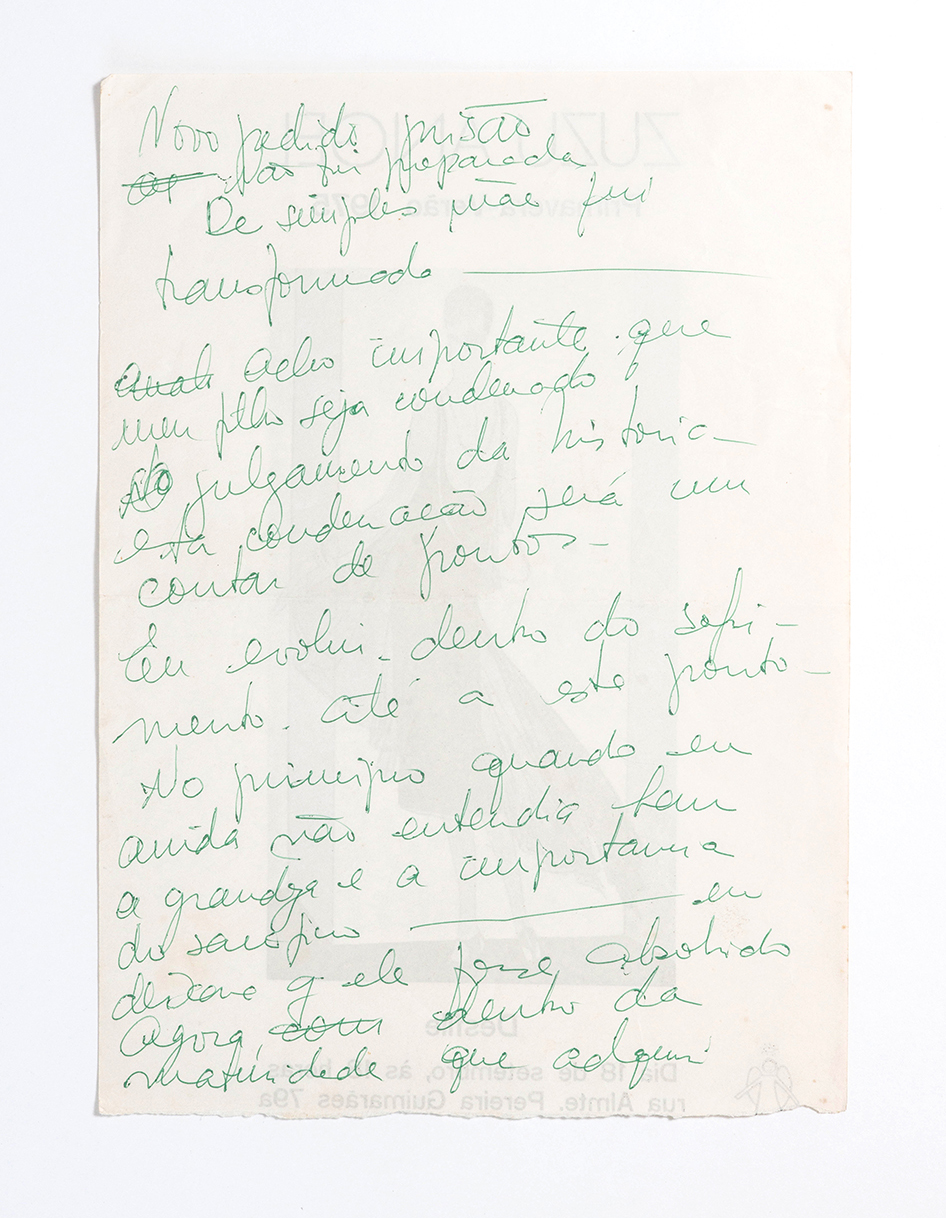 Novo pedido prisão
Não fui preparada
De simples mãe fui
transformada
Acho importante que
meu filho seja condenado
No julgamento da historia
esta condenacão será um
contar de pontos
Eu evolui dentro do sofri-
mento até a este ponto
No principio quando eu
ainda não entendia bem
a grandeza e a importancia
do sacrificio eu
q ele fosse absolvido
Agora com dentro da
maturidade que adquiri
ZUZU ANGEL
Primavera Verão 1975
Desfile
Dia 18 de setembro, às horas
rua Almte. Pereira Guimarães 79a